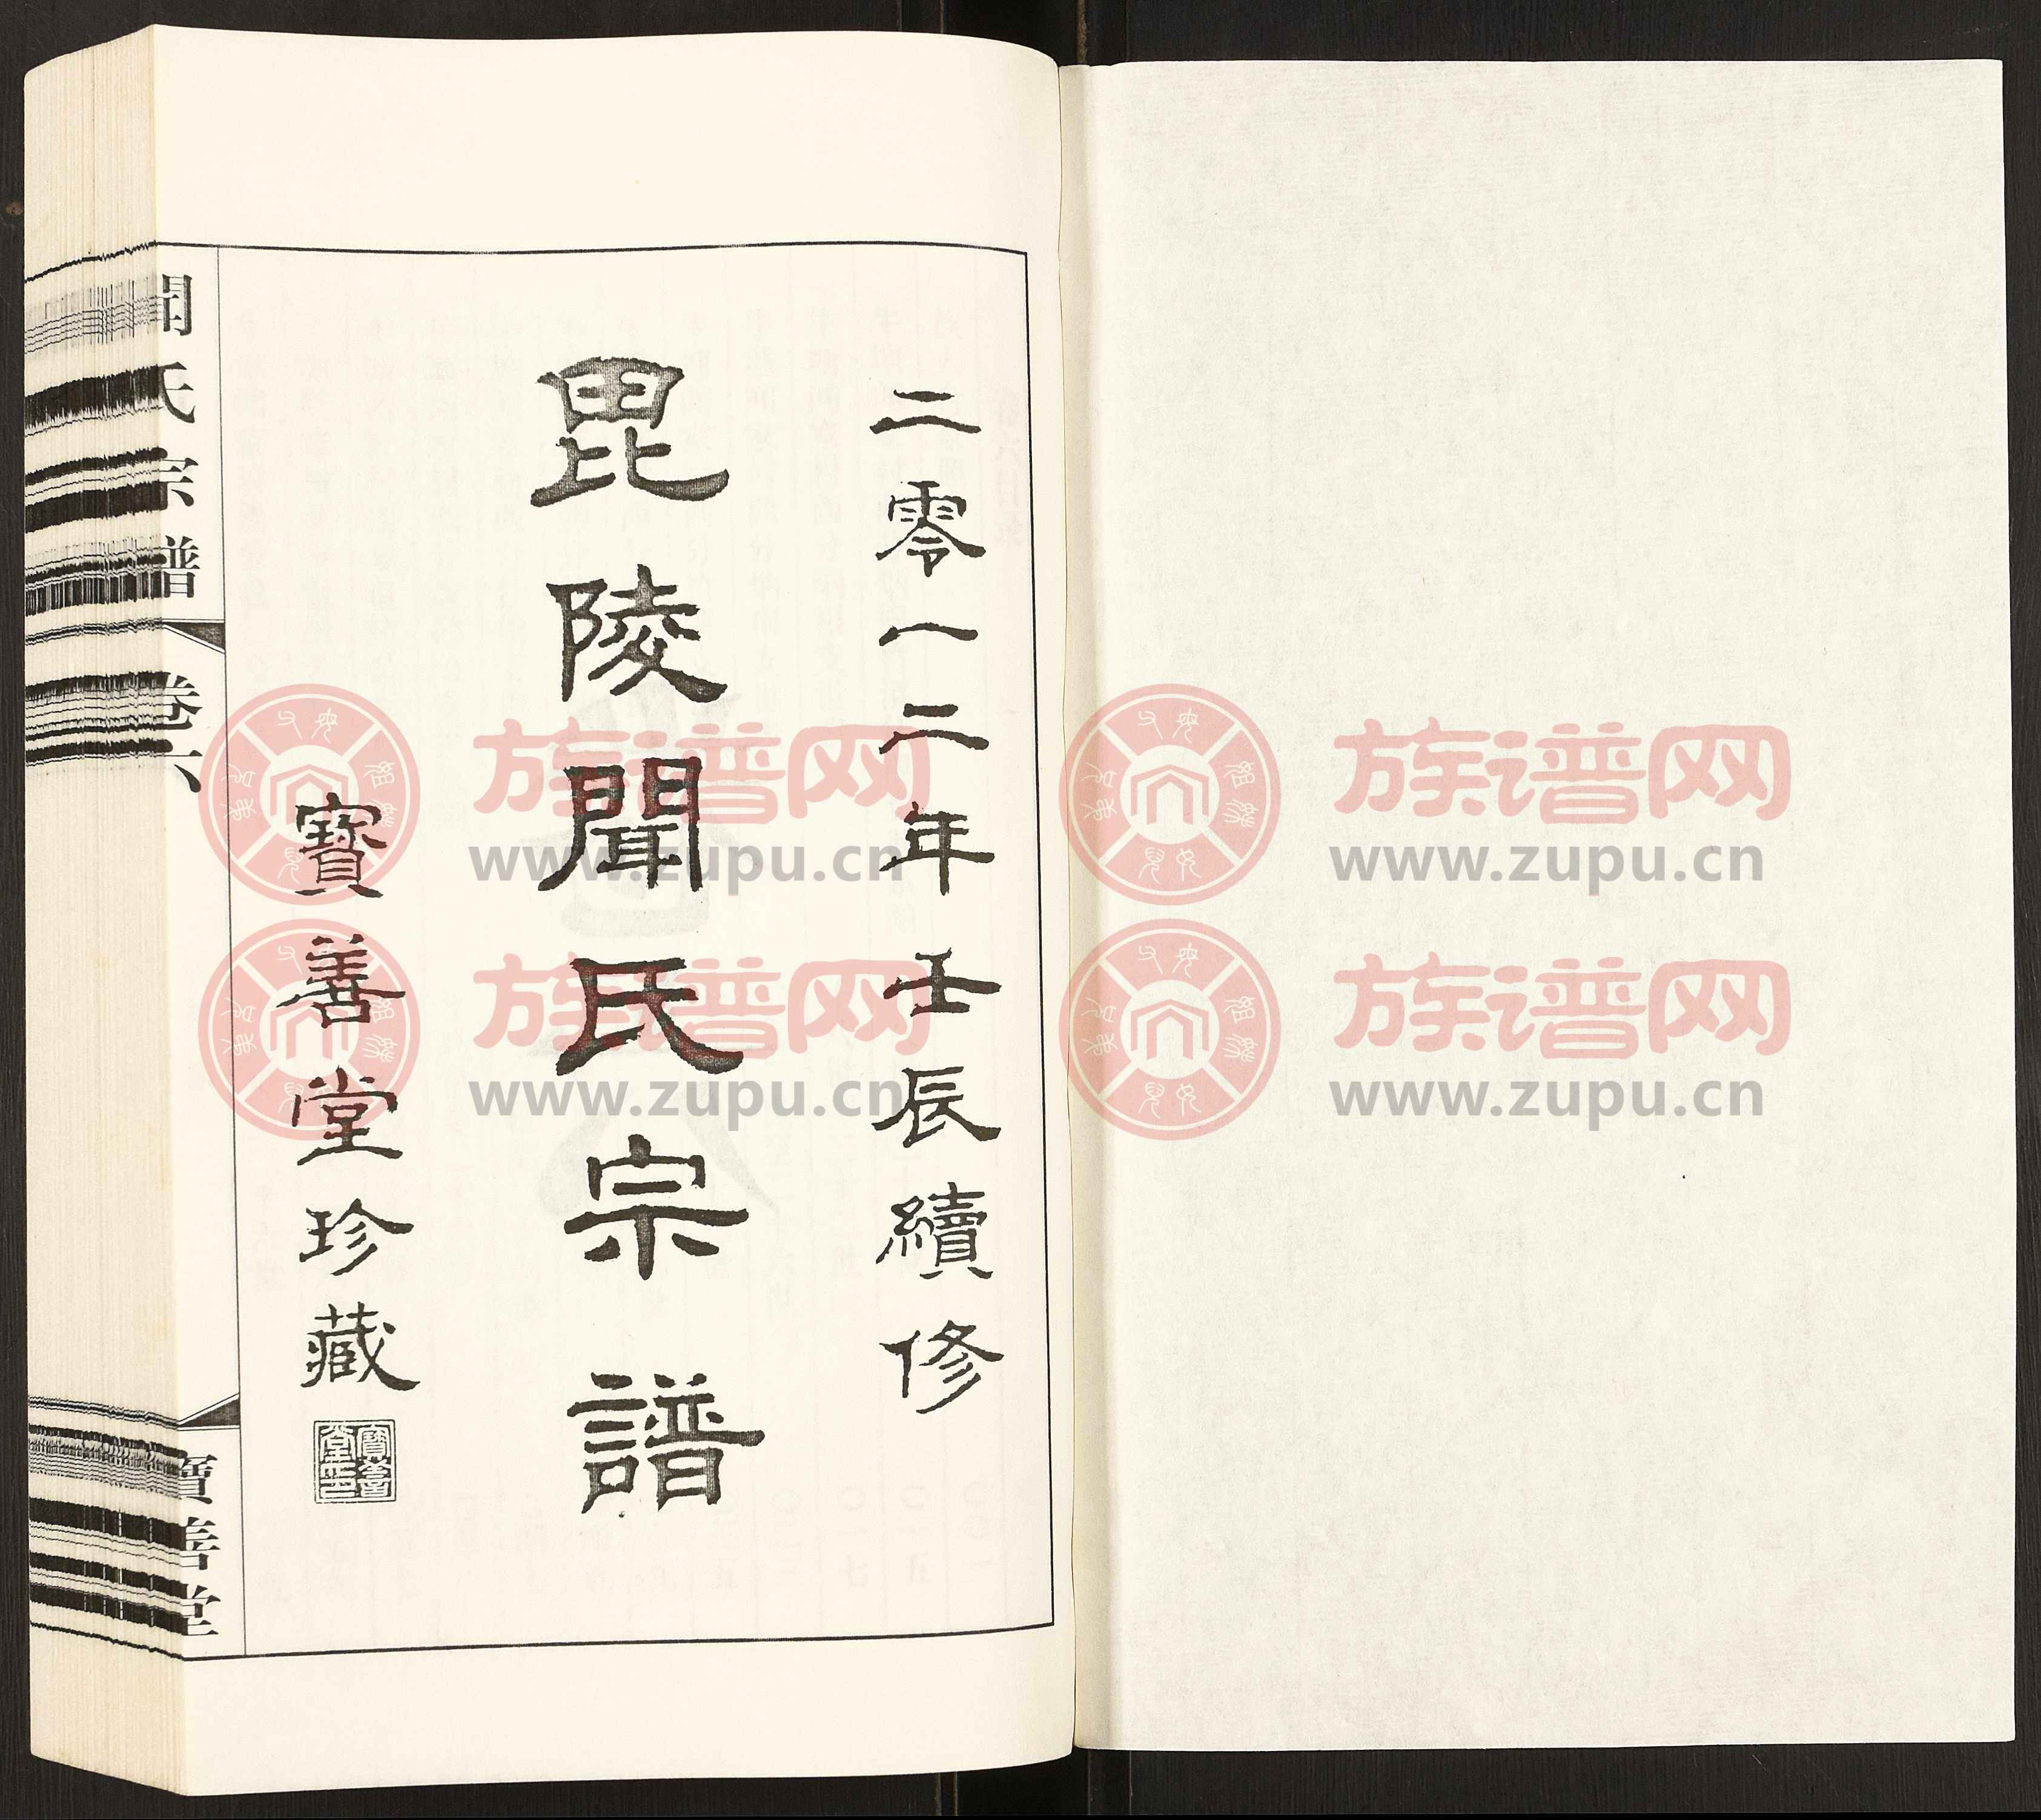 二零一二年壬辰續修
毘陵聞氏宗譜
寶善堂珍藏
寶善堂印
聞氏宗譜
卷六
寶善堂
族谱网
www.zupu.cn
族谱网
www.zupu.cn
族谱网
www.zupu.cn
族谱网
www.zupu.cn